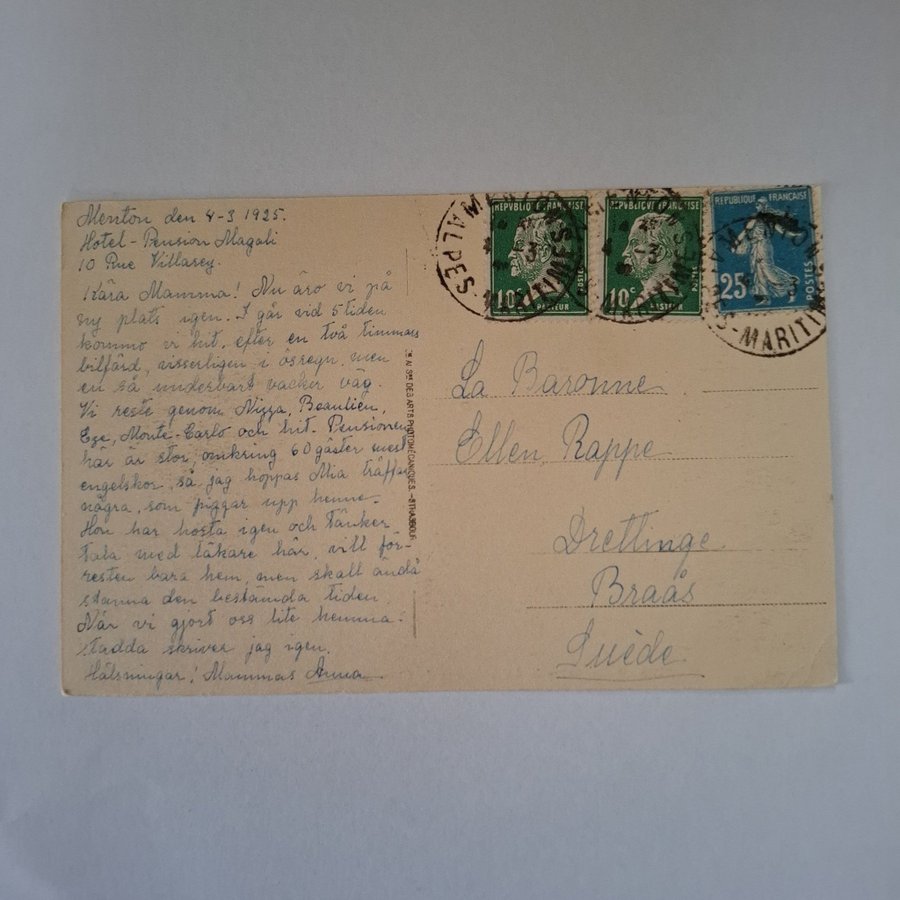 Menton den 4-3 1925.
Hotel-Pension Magali
10 Rue Villarey.
Kära Mamma! Nu äro vi på
ny plats igen. I går vid 5 tiden
kommo vi hit, efter en två timmars
bilfärd, visserligen i ösregn, men
en så underbart vacker väg.
Vi reste genom Nizza, Beaulieu,
Eze, Monte-Carlo och hit. Pensionen
här är stor, omkring 60 gäster mest
engelskor, så jag hoppas Mia träffar
några, som piggar upp henne.
Hon har hosta igen och tänker
tala med läkare här, vill för-
resten bara hem, men skall ändå
stanna den bestämda tiden.
När vi gjort oss lite hemma-
stadda skriver jag igen.
Hälsningar! Mammas Anna
DES ARTS PHOTOMÉCANIQUES. - STRASBOURG
REPVBLIQVE FRANÇAISE
10c
POSTES
PASTEUR
REPVBLIQVE FRANÇAISE
10c
POSTES
PASTEUR
REPUBLIQUE FRANÇAISE
25
POSTES
MENTON
ALPES MARITIMES
S-MARITIMES
La Baronne
Ellen Rappe
Drettinge
Braås
Suède